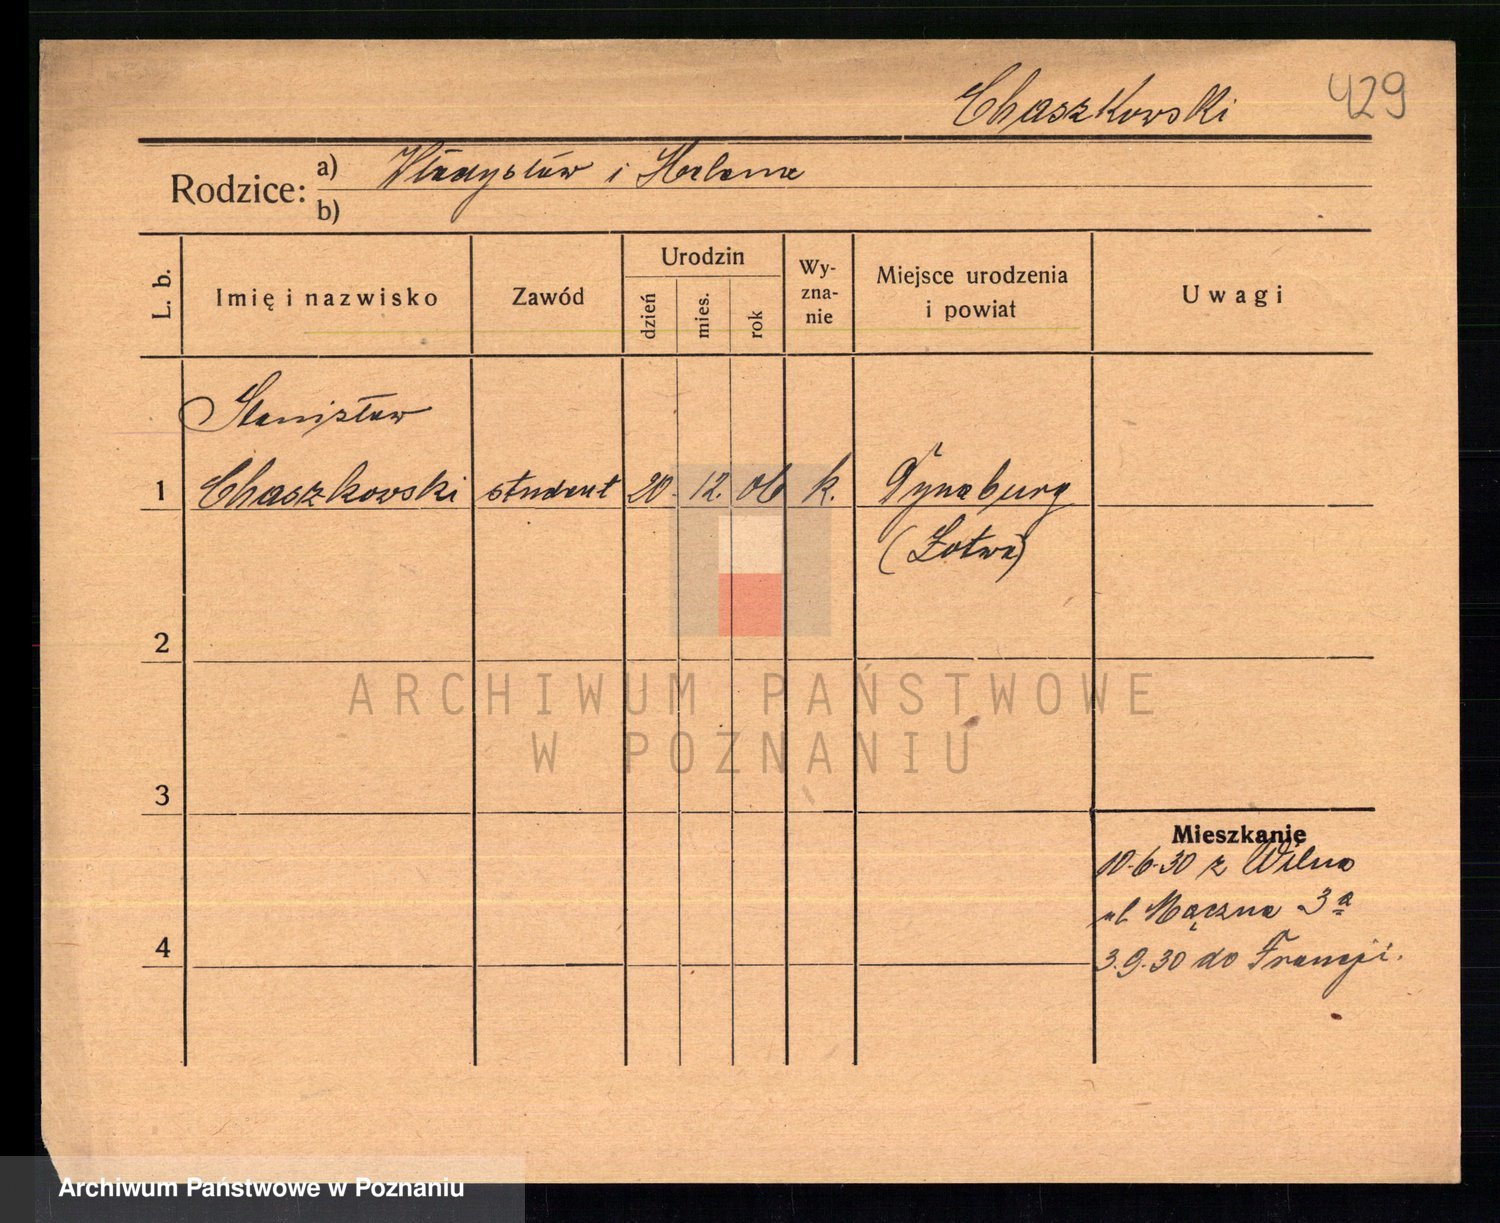 429
Chaszkowski
Rodzice: a) Władysław i Helena
b)
L. b.
Imię i nazwisko
Zawód
Urodzin
dzień
mies.
rok
Wy-
zna-
nie
Miejsce urodzenia
i powiat
Uwagi
Stanisław
1 Chaszkowski student 20. 12. 06 k. Dynaburg
(Łotwa)
2
ARCHIWUM PAŃSTWOWE
W POZNANIU
3
Mieszkanie
10.6.30 z Wilna
ul. Mączna 3a
4
3.9.30 do Francji.
Archiwum Państwowe w Poznaniu